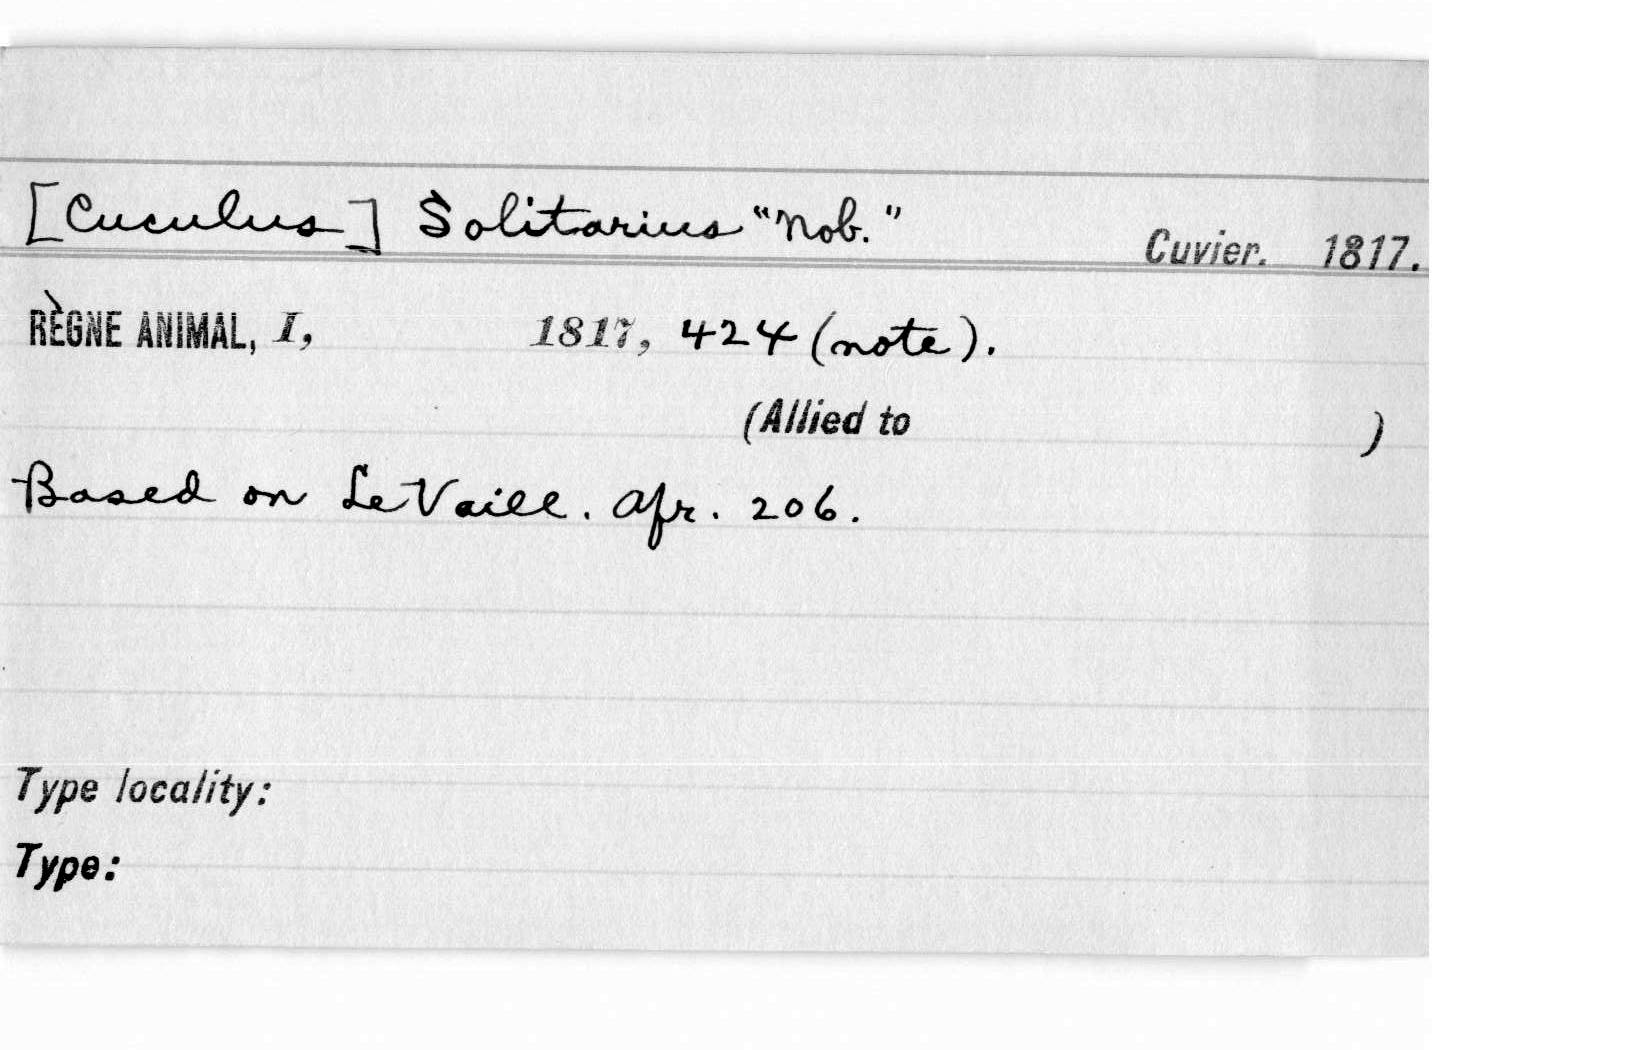 [Cuculus] Solitarius "Nob." Cuvier. 1817.
RÈGNE ANIMAL, I, 1817, 424 (note).
(Allied to )
Based on LeVaill. Afr. 206.
Type locality:
Type: